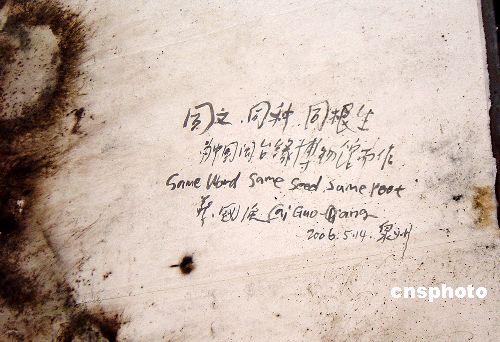 同文.同种.同根生
为中国闽台缘博物馆而作
Same Word Same Seed Same root
蔡国强 Cai Guo-Qiang
2006.5.14.泉州
cnsphoto